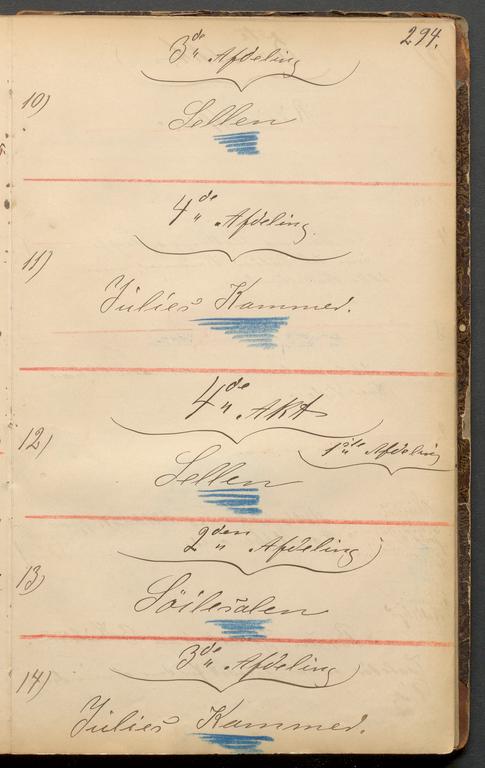 294.
3de Afdeling
10)
Sellen
4de Afdeling.
11)
Julies Kammer.
4de Akt
12)
1ste Afdeling
Sellen
2den Afdeling
13)
Söilesalen
3de Afdeling
14)
Julies Kammer.